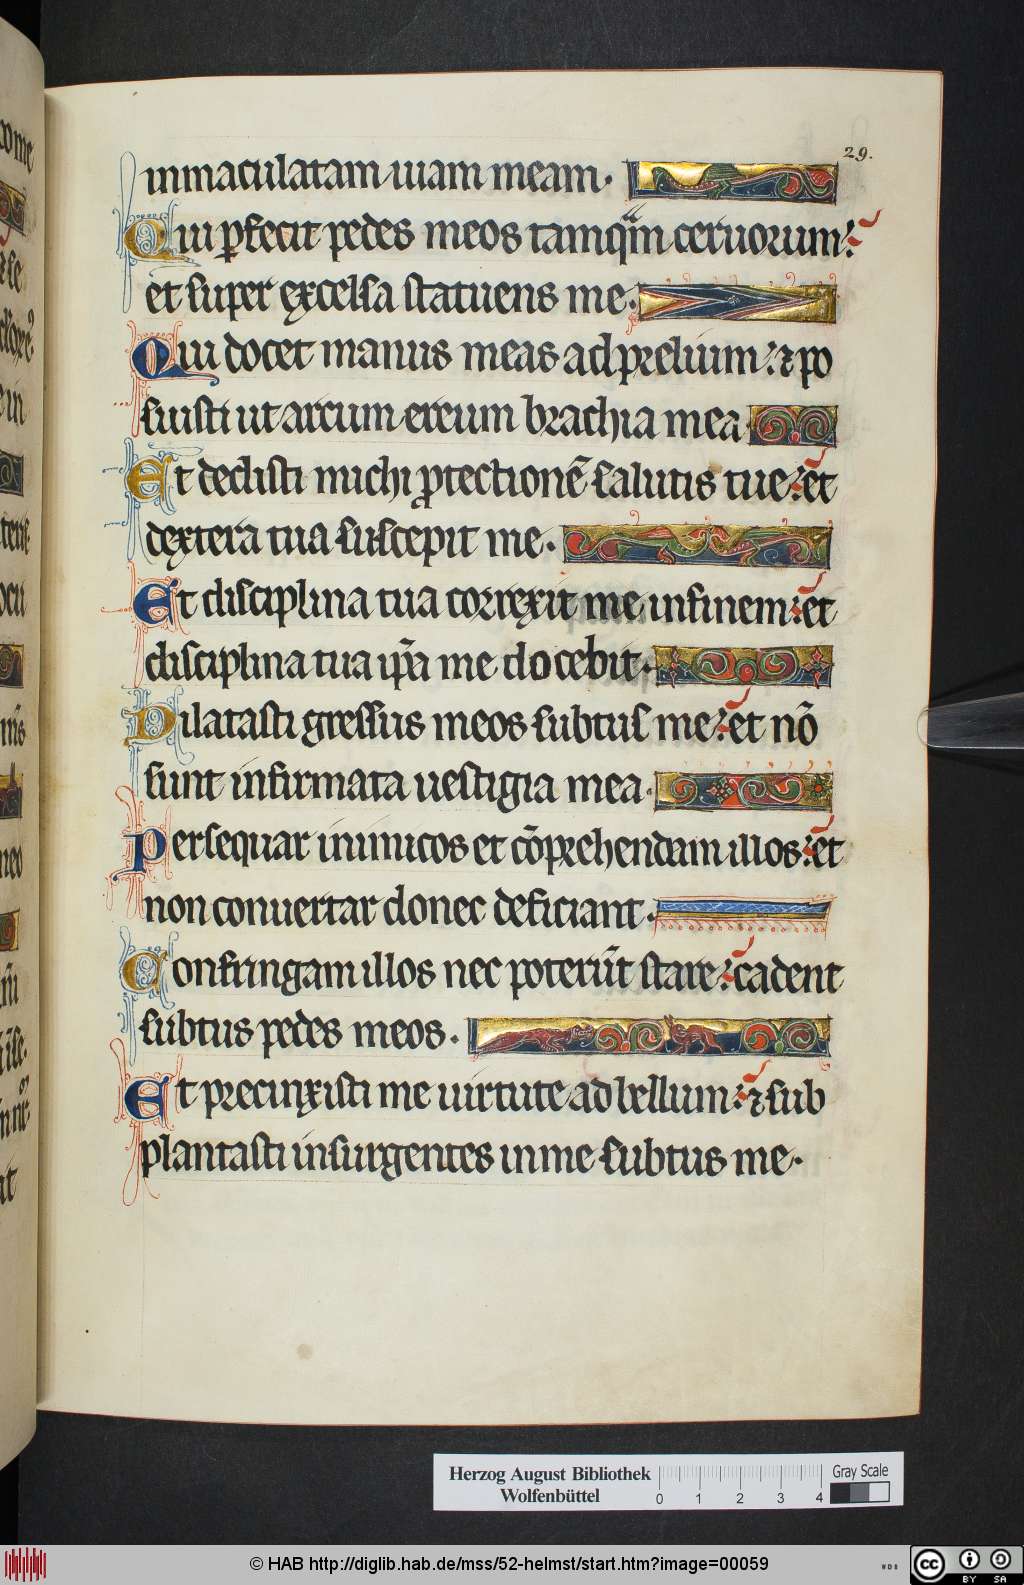 29.
inmaculatam uiam meam.
Qui ꝑfecit pedes meos tamqͫm ceruorum:
et super excelsa statuens me.
Qui docet manus meas ad prelium: ⁊ po
suisti ut arcum ereum brachia mea
Et dedisti michi ꝓtectionē salutis tue: et
dextera tua suscepit me.
Et disciplina tua correxit me infinem: et
disciplina tua ip̄a me docebit.
Dilatasti gressus meos subtus me: et nō
sunt infirmata uestigia mea.
Persequar inimicos et cōprehendam illos: et
non conuertar donec deficiant.
Confringam illos nec poterūt stare: cadent
subtus pedes meos.
Et precinxisti me uirtute ad bellum: ⁊ sub
plantasti insurgentes in me subtus me.
Herzog August Bibliothek
Wolfenbüttel
0 1 2 3 4
Gray Scale
© HAB http://diglib.hab.de/mss/52-helmst/start.htm?image=00059
WDB
cc BY SA